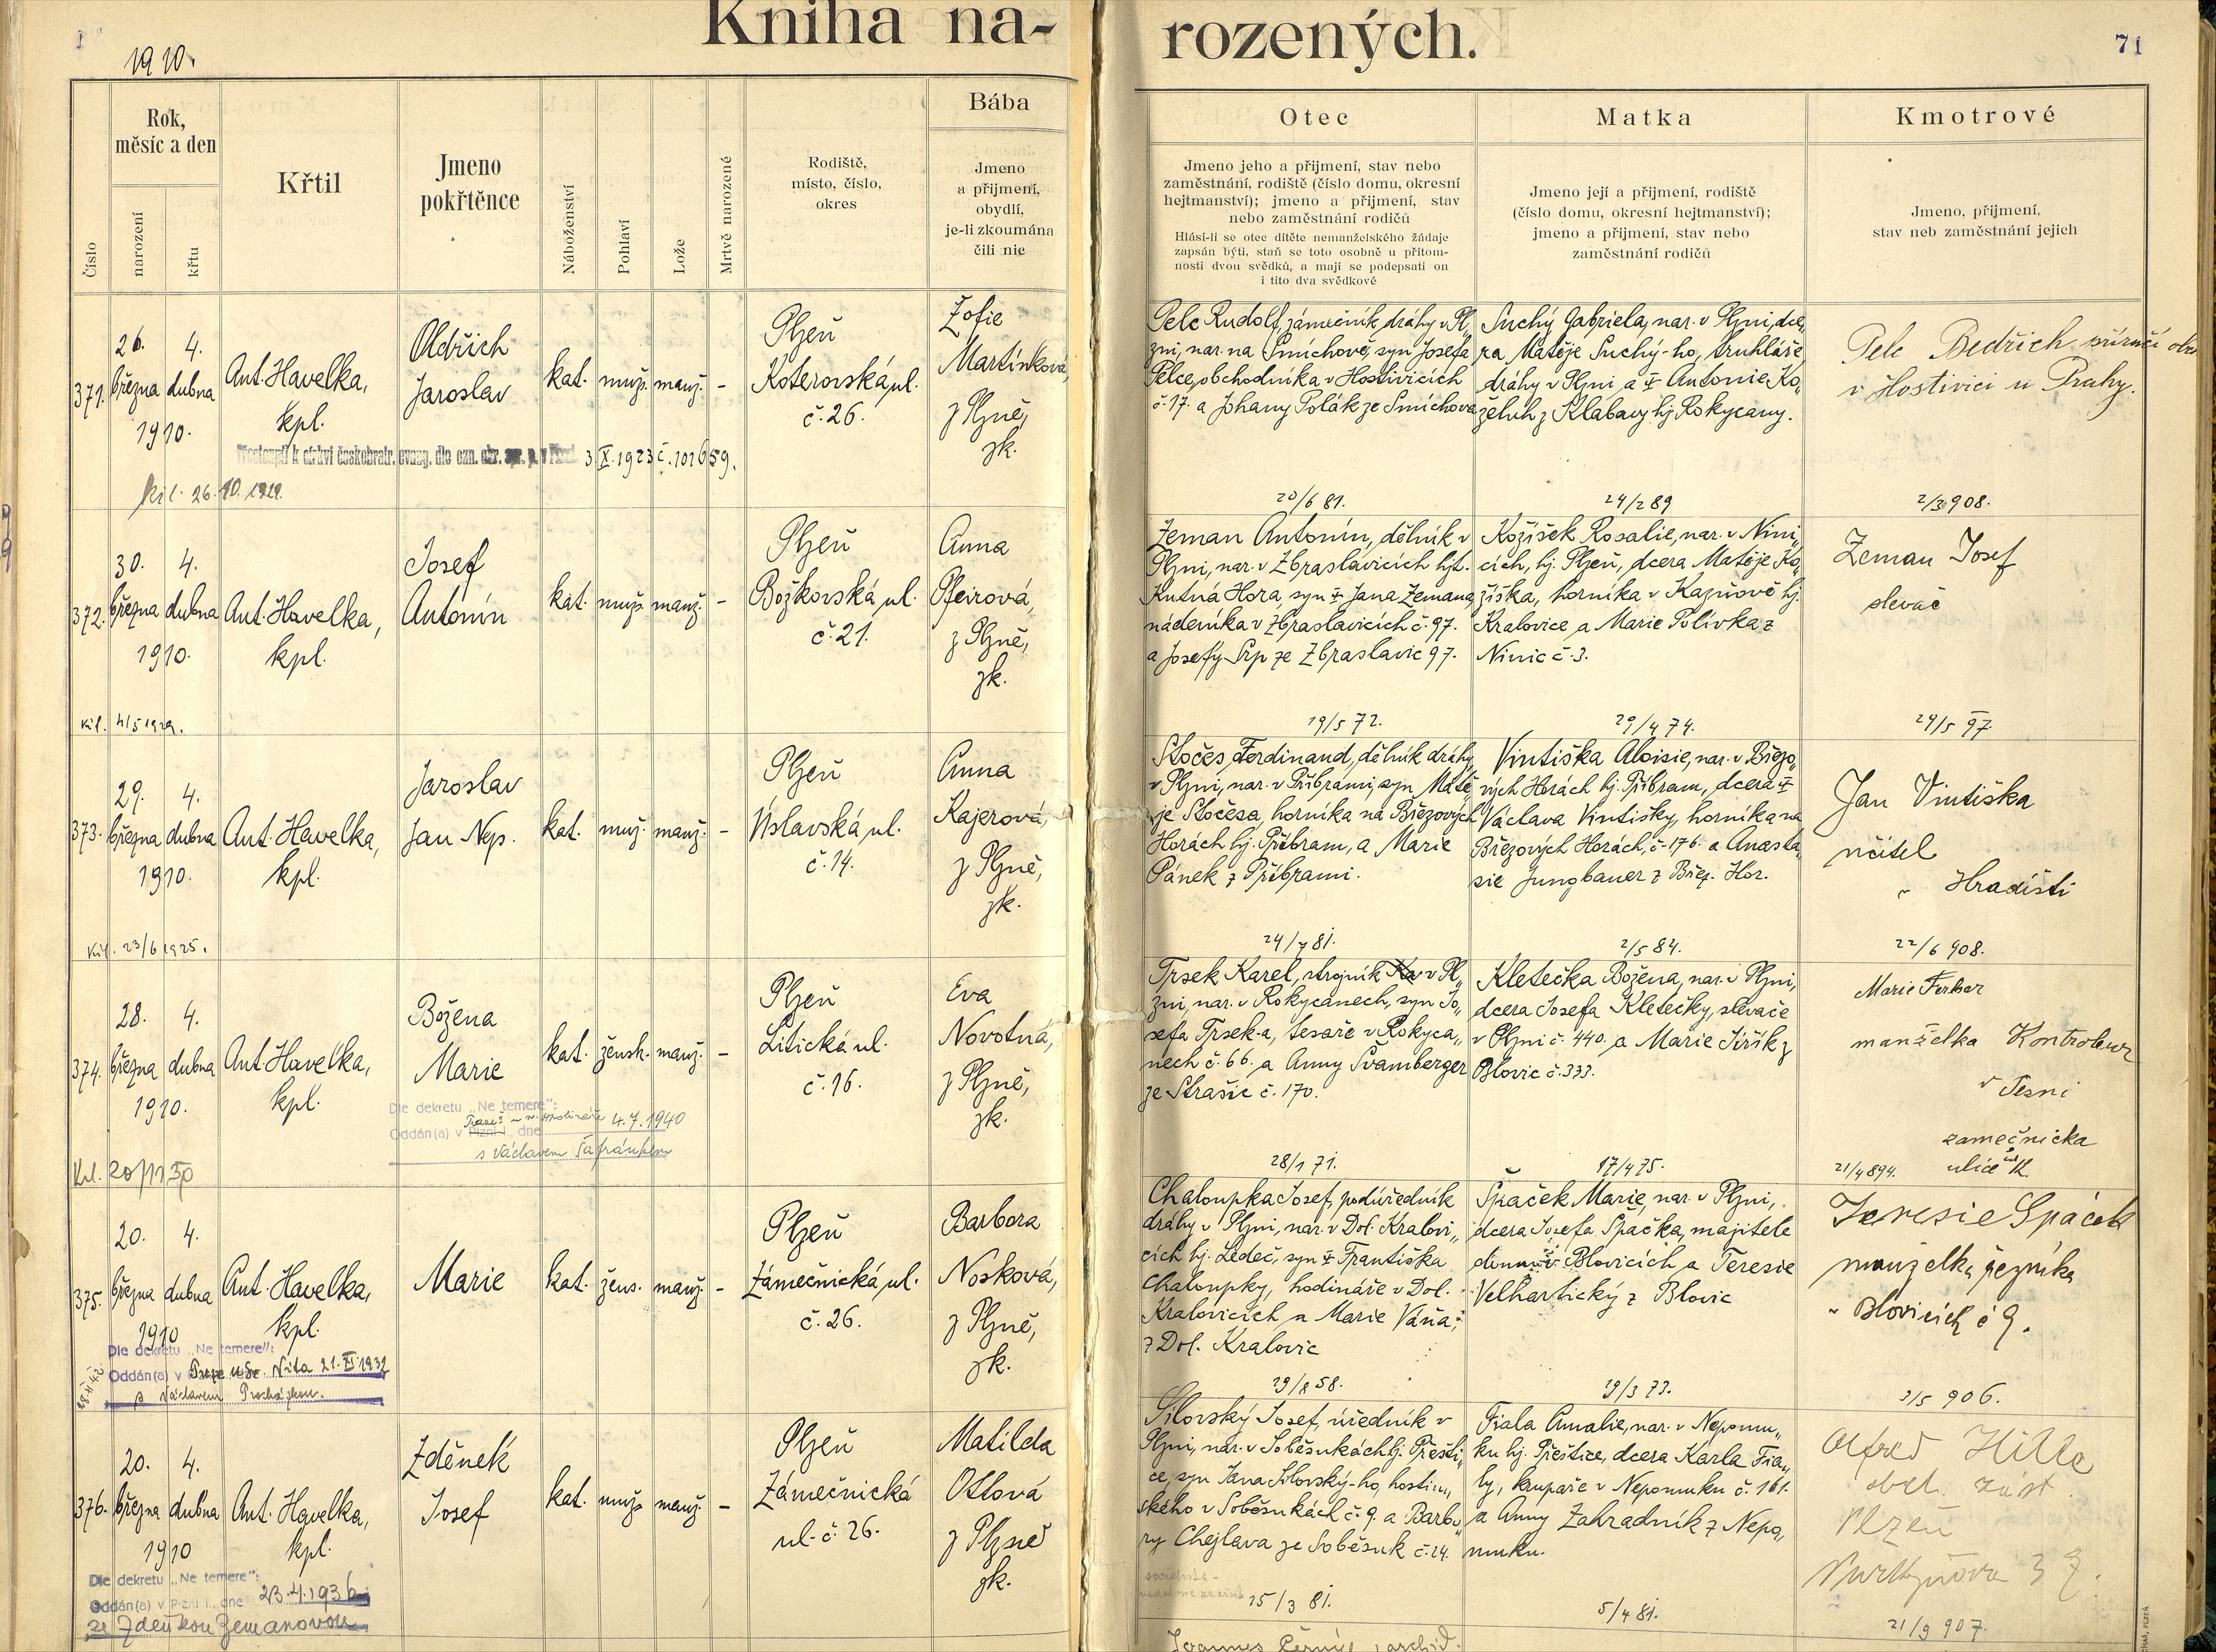 Kniha na-
rozených.
71
1910.
Rok,
měsíc a den
Křtil
Jmeno
pokřtěnce
Rodiště,
místo, číslo,
okres
Bába
Jmeno
a přijmení,
obydlí,
je-li zkoumána
čili nic
Číslo
narození
křtu
Náboženství
Pohlaví
Lože
Mrtvě narozené
Otec
Jmeno jeho a přijmení, stav nebo
zaměstnání, rodiště (číslo domu, okresní
hejtmanství); jmeno a přijmení, stav
nebo zaměstnání rodičů
Hlásí-li se otec dítěte nemanželského žádaje
zapsán býti, staň se toto osobně u přítom-
nosti dvou svědků, a mají se podepsati on
i tito dva svědkové
Matka
Jmeno její a přijmení, rodiště
(číslo domu, okresní hejtmanství);
jmeno a přijmení, stav nebo
zaměstnání rodičů
Kmotrové
Jmeno, přijmení,
stav neb zaměstnání jejich
371.
26.
března
1910.
4.
dubna
Ant. Havelka,
kpl.
Oldřich
Jaroslav
kat.
muž.
manž.
-
Plzeň
Koterovská ul.
č. 26.
Žofie
Martínková,
z Plzně,
zk.
3. X. 1923 č. 101659.
Pelc Rudolf, zámečník dráhy v Pl„
zni, nar. na Smíchově, syn Josefa
Pelce, obchodníka v Hostivicích
č. 17. a Johany Polák ze Smíchova
20/6 81.
Suchý Gabriela, nar. v Plzni, dce„
ra Matěje Suchý-ho, truhláře
dráhy v Plzni a ‡ Antonie Ko„
želuh z Klabavy hj. Rokycany.
24/2 89
Pelc Bedřich
v Hostivici u Prahy.
2/3 908.
372.
30.
března
1910.
4.
dubna
Ant. Havelka,
kpl.
Josef
Antonín
kat.
muž.
manž.
-
Plzeň
Božkovská ul.
č. 21.
Anna
Pfeirová,
z Plzně,
zk.
Zeman Antonín, dělník v
Plzni, nar. v Zbraslavicích hjt.
Kutná Hora, syn ‡ Jana Zemana,
nádeníka v Zbraslavicích č. 97.
a Josefy Srp ze Zbraslavic 97.
19/5 72.
Kožíšek Rosalie, nar. v Nini„
cích, hj. Plzeň, dcera Matěje Ko„
žíška, horníka v Kaznově hj.
Kralovice a Marie Polívka z
Ninic č. 3.
29/4 74.
Zeman Josef
slevač
29/5 97.
373.
29.
března
1910.
4.
dubna
Ant. Havelka,
kpl.
Jaroslav
Jan Nep.
kat.
muž.
manž.
-
Plzeň
Úslavská ul.
č. 14.
Anna
Kajerová,
z Plzně,
zk.
Stočes Ferdinand, dělník dráhy
v Plzni, nar. v Příbrami, syn Matě„
je Stočesa, horníka na Březových
Horách hj. Příbram, a Marie
Pánek z Příbrami.
24/7 81.
Vintiška Aloisie, nar. v Březo„
vých Horách hj. Příbram, dcera ‡
Václava Vintišky, horníka na
Březových Horách, č. 176. a Anasta„
sie Jungbauer z Břez. Hor.
2/5 84.
Jan Vintiška
učitel
v Hradišti
22/6 908.
374.
28.
března
1910.
4.
dubna
Ant. Havelka,
kpl.
Božena
Marie
kat.
žensk.
manž.
-
Plzeň
Litická ul.
č. 16.
Eva
Novotná,
z Plzně,
zk.
Dle dekretu „Ne temere“:
Oddán(a) v Plzni I., dne 4.7.1940
s Václavem Šafránkem
Trsek Karel, strojník v Pl„
zni, nar. v Rokycanech, syn Jo„
sefa Trsek-a, tesaře v Rokyca„
nech č. 66. a Anny Švamberger
ze Strašic č. 170.
28/1 71.
Kletečka Božena, nar. v Plzni,
dcera Josefa Kletečky, slevače
v Plzni č. 440. a Marie Jiřík z
Blovic č. 333.
17/4 75.
Marie Ferber
manželka
zámečnická
ulice
21/4 894.
375.
20.
března
1910
4.
dubna
Ant. Havelka,
kpl.
Marie
kat.
žens.
manž.
-
Plzeň
Zámečnická ul.
č. 26.
Barbora
Nosková,
z Plzně,
zk.
Dle dekretu „Ne temere“:
Oddán(a) v 21. XI. 1932
s Václavem Procházkou.
Chaloupka Josef, podúředník
dráhy v Plzni, nar. v Dol. Kralovi„
cích hj. Ledeč, syn ‡ Františka
Chaloupky, hodináře v Dol.
Kralovicích a Marie Váňa
z Dol. Kralovic
29/8 58.
Špaček Marie, nar. v Plzni,
dcera Josefa Špačka, majitele
domu v Blovicích a Teresie
Velhartický z Blovic
29/3 73.
Teresie Špaček
manželka řezníka
v Blovicích č 9.
2/5 906.
376.
20.
března
1910
4.
dubna
Ant. Havelka,
kpl.
Zdeněk
Josef
kat.
muž.
manž.
-
Plzeň
Zámečnická
ul. č. 26.
Matilda
Ottová
z Plzně
zk.
Dle dekretu „Ne temere“:
Oddán(a) v Plzni I., dne 23.4.1936
se Zdeňkou Zemanovou
Silovský Josef, úředník v
Plzni, nar. v Soběsukách hj. Přešti„
ce, syn Jana Silovský-ho, hostin„
ského v Soběsukách č. 9. a Barbo„
ry Chejlava ze Soběsuk č. 24.
15/3 81.
Fiala Amalie, nar. v Nepomu„
ku hj. Přeštice, dcera Karla Fia„
ly, krupaře v Nepomuku č. 161.
a Anny Zahradník z Nepo„
muku.
5/4 81.
Alfred Hille
obch. zást.
Plzeň
21/9 907.